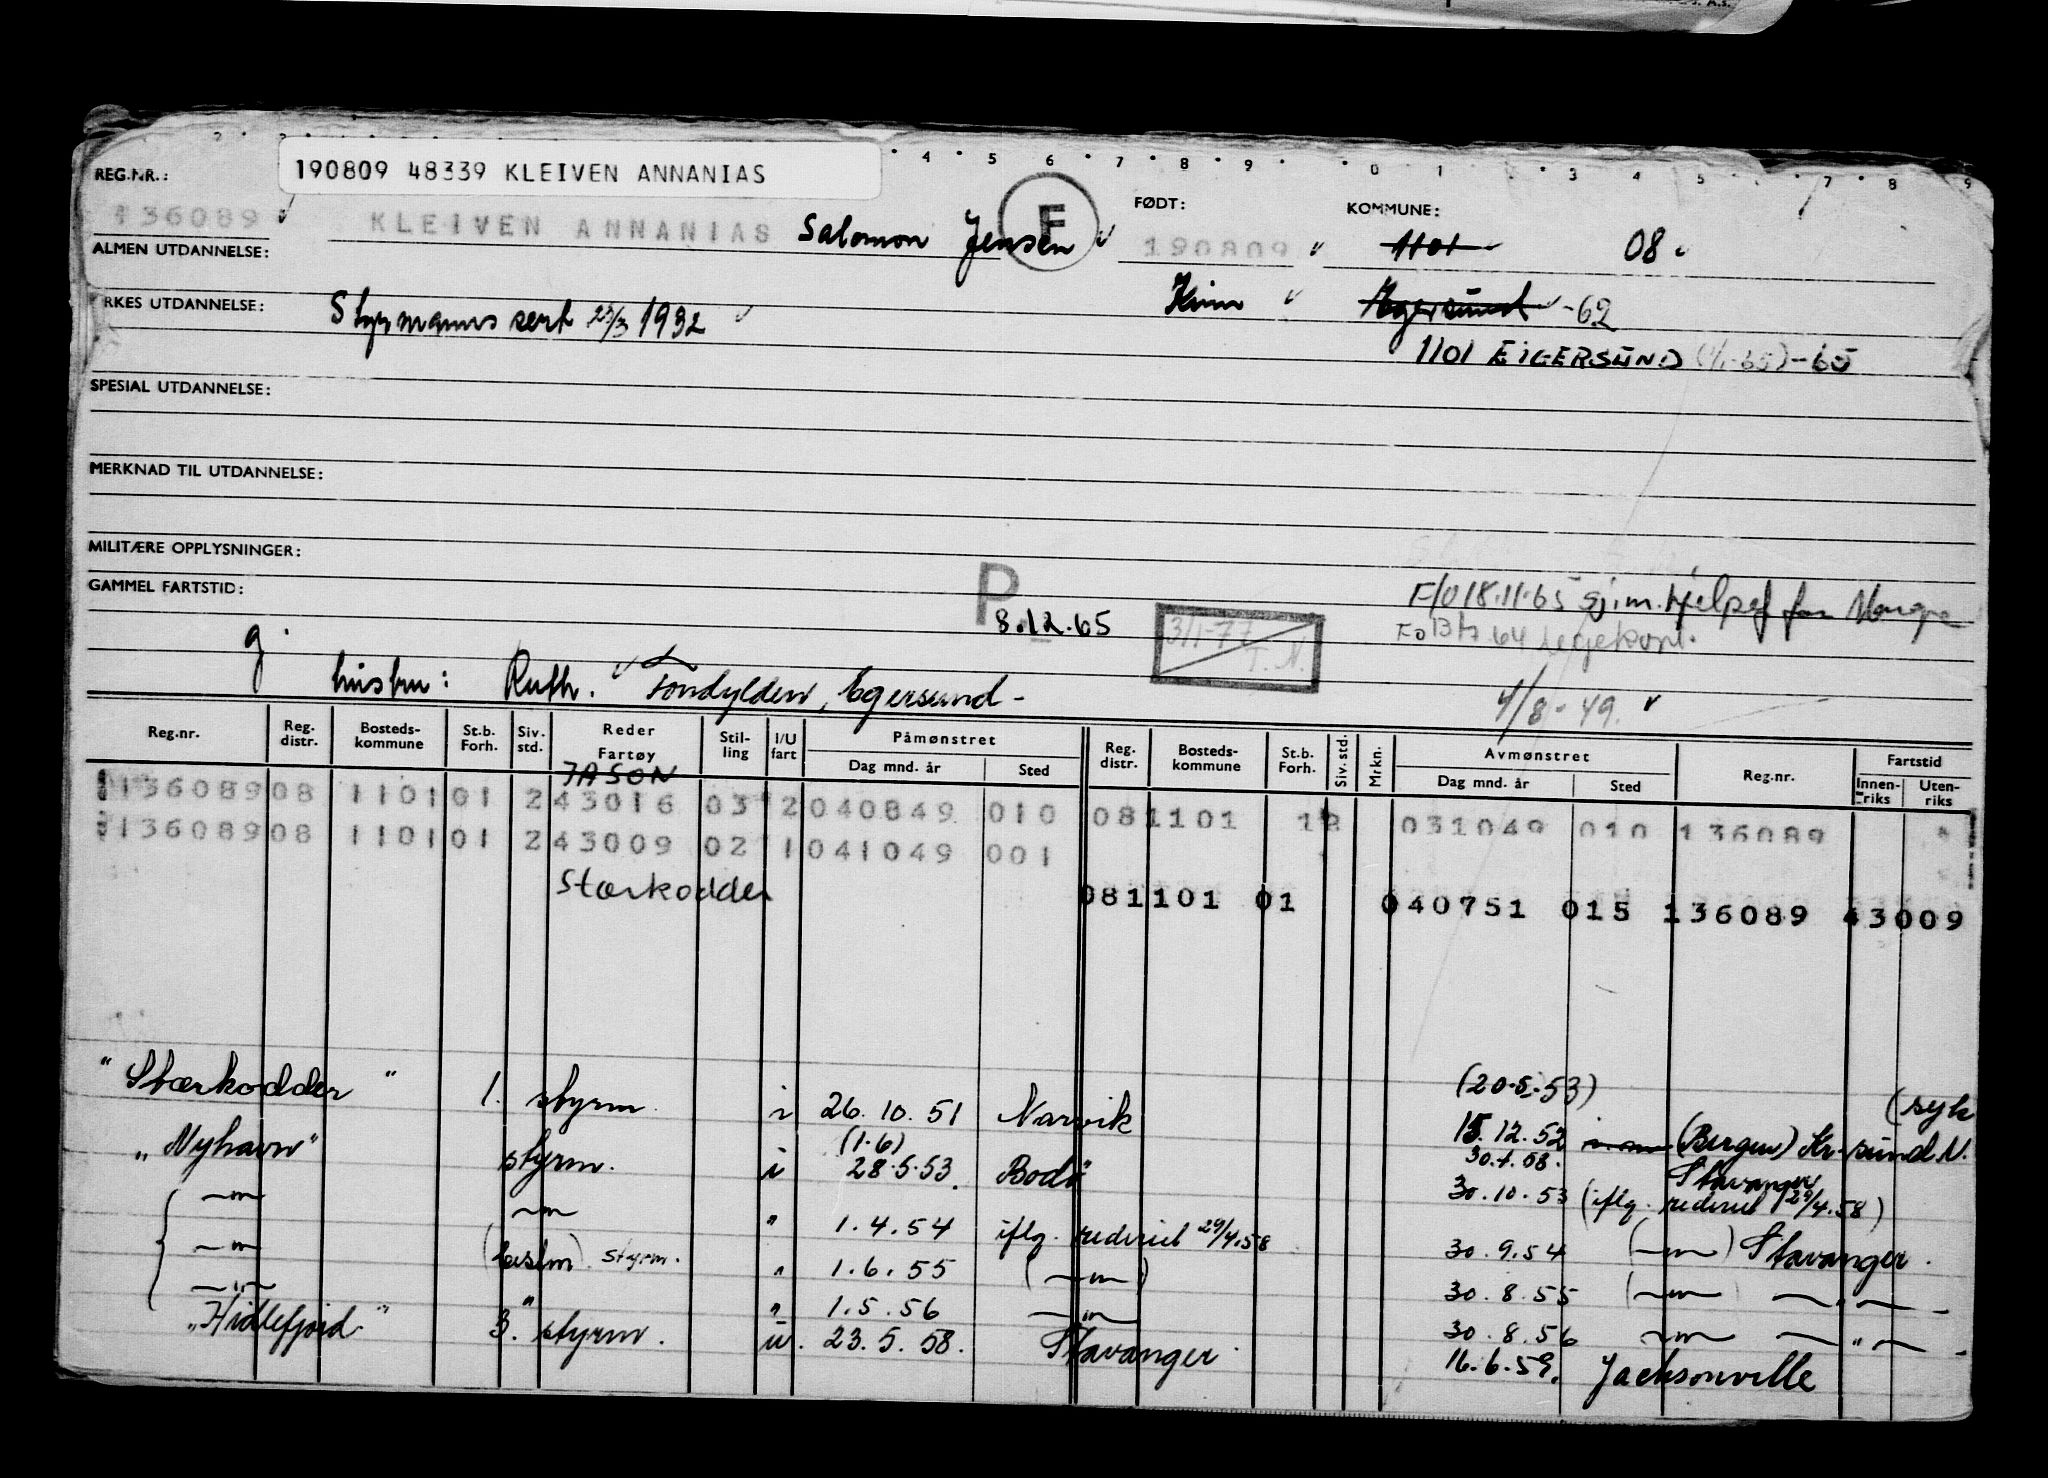 S. A.S.
2 3 4 5 6 7 8 9 0 1 3 4 5 7 8 9
190809 48339 KLEIVEN ANNANIAS
REG.NR.:
FØDT:
KOMMUNE:
136089 KLEIVEN ANNANIAS Salomon Jensen F 190809 1101 08
ALMEN UTDANNELSE:
YRKES UTDANNELSE: Styrmanns sert 23/3 1932 Egersund -62
1101 EIGERSUND (1/1-65) -65
SPESIAL UTDANNELSE:
MERKNAD TIL UTDANNELSE:
MILITÆRE OPPLYSNINGER:
GAMMEL FARTSTID:
P 8.12.65
3/1-77 T.N.
F/0 18.11.65 gj.m. hjelpef for
g.
hustru: Ruth. , Egersund -
4/8 - 49.
Reg.nr. Reg. distr. Bosteds-kommune St.b. Forh. Siv. std. Reder Fartøy Stil-ling I/U fart Påmønstret Dag mnd. år Sted Reg. distr. Bosteds-kommune St.b. Forh. Siv. std. Mrkn. Avmønstret Dag mnd. år Sted Reg.nr. Fartstid Innen-riks Uten-riks
JASON
136089 08 1101 01 2 43016 03 2 040849 010 08 1101 12 031049 010 136089
136089 08 1101 01 2 43009 02 1 041049 001
Stærkodder
081101 01 040751 015 136089 43009
"Stærkodder" 1. styrm. i 26.10.51 Narvik (20.5.53) 15.12.52 (Bergen) Kr.sund N. (syk
"Nyhavn" styrm. i (1.6) 28.5.53. Bodø 30.4.58. 30.10.53 Stavanger (iflg. rederiet 29/4.58)
—"— —"— " 1.4.54 iflg. rederiet 29/4.58 30.9.54 (—"—) Stavanger.
—"— styrm. " 1.6.55 (—"—) 30.8.55 (—"—) —"—
—"— " " 1.5.56 —"— 30.8.56 —"— —"—
"Hidlefjord" 3. styrm. u. 23.5.58. Stavanger. 16.6.59. Jacksonville